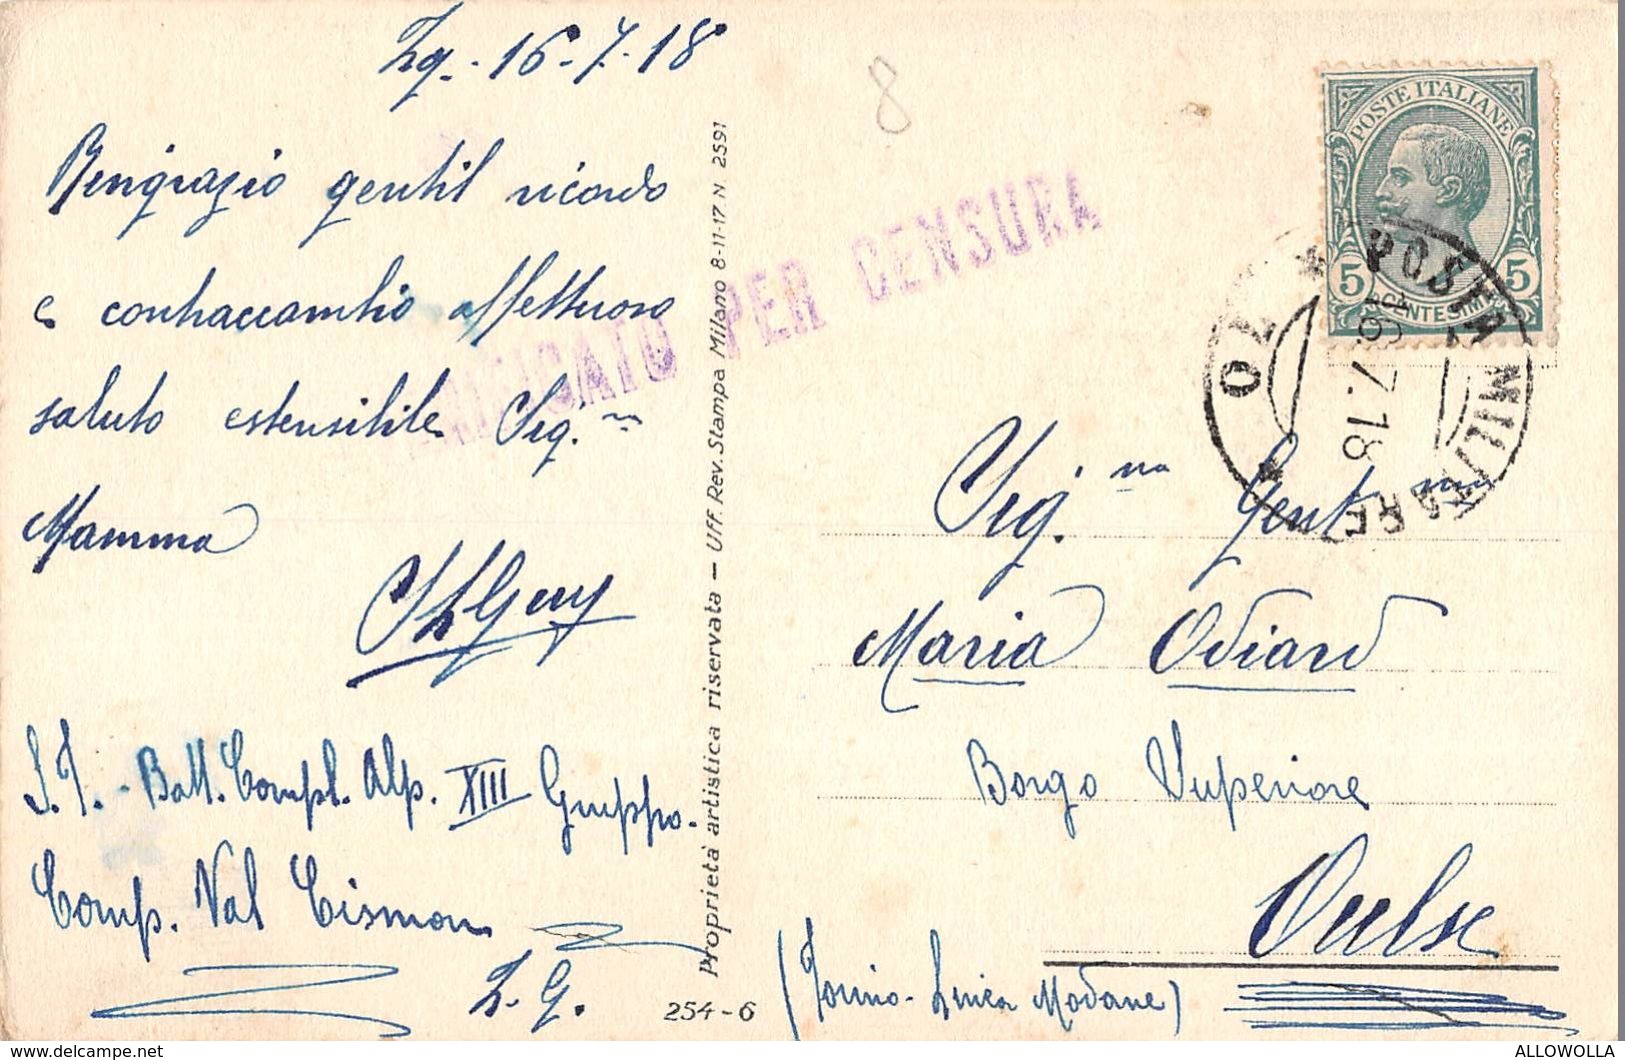 Zg. - 16-7-18
Ringrazio gentil ricordo
e contraccambio affettuoso
saluto estensibile Sig.ra
Mamma
Guy
S.T. - Batt. Compl. Alp. XIII Gruppo.
Comp. Val Cismon
Z. G.
VERIFICATO PER CENSURA
Proprietà artistica riservata — Uff. Rev. Stampa Milano 8-11-17 N. 2591
254-6
8
POSTE ITALIANE
5 5
CENTESIMI
POSTA MILITARE
16.7.18
Sig.na Gent.ma
Maria Odiard
Borgo Superiore
Oulx
(Torino - Linea Modane)
ALLOWOLLA